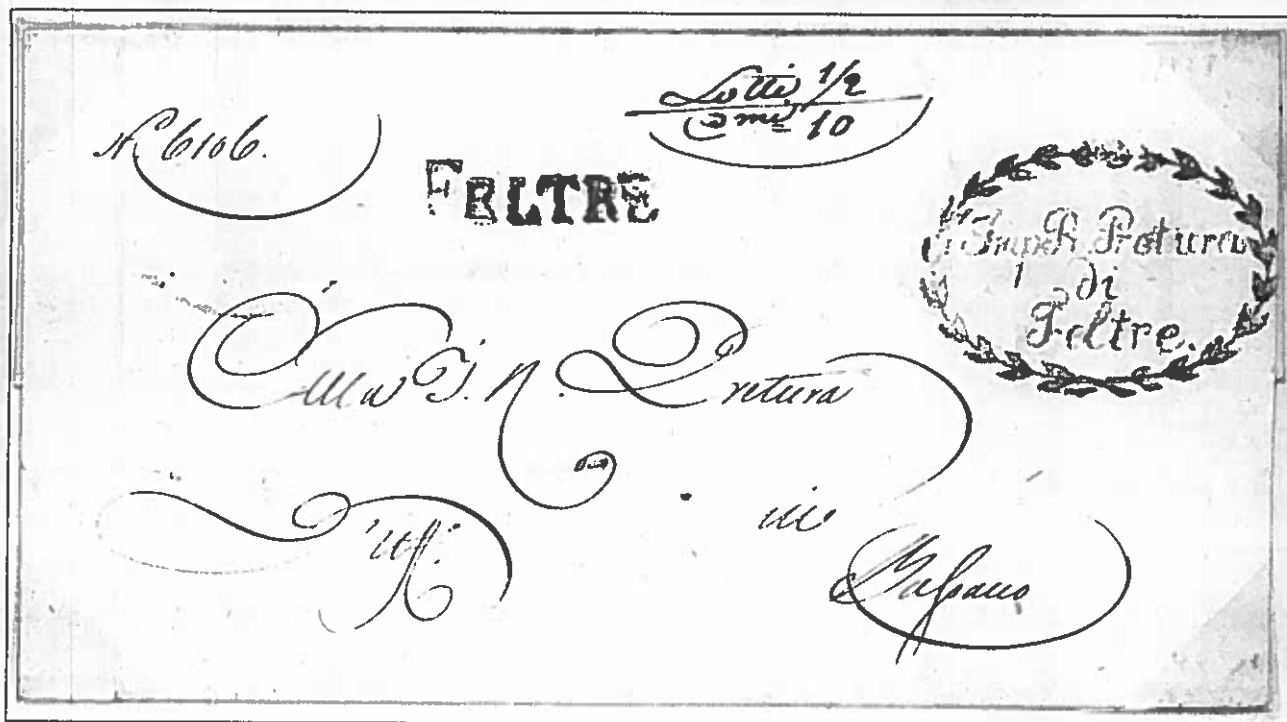 N. 6106.
Lotti 1/2
Cmi 10
FELTRE
Imp. R. Pretura
di
Feltre.
Alla I. R. Pretura
in
Bassano